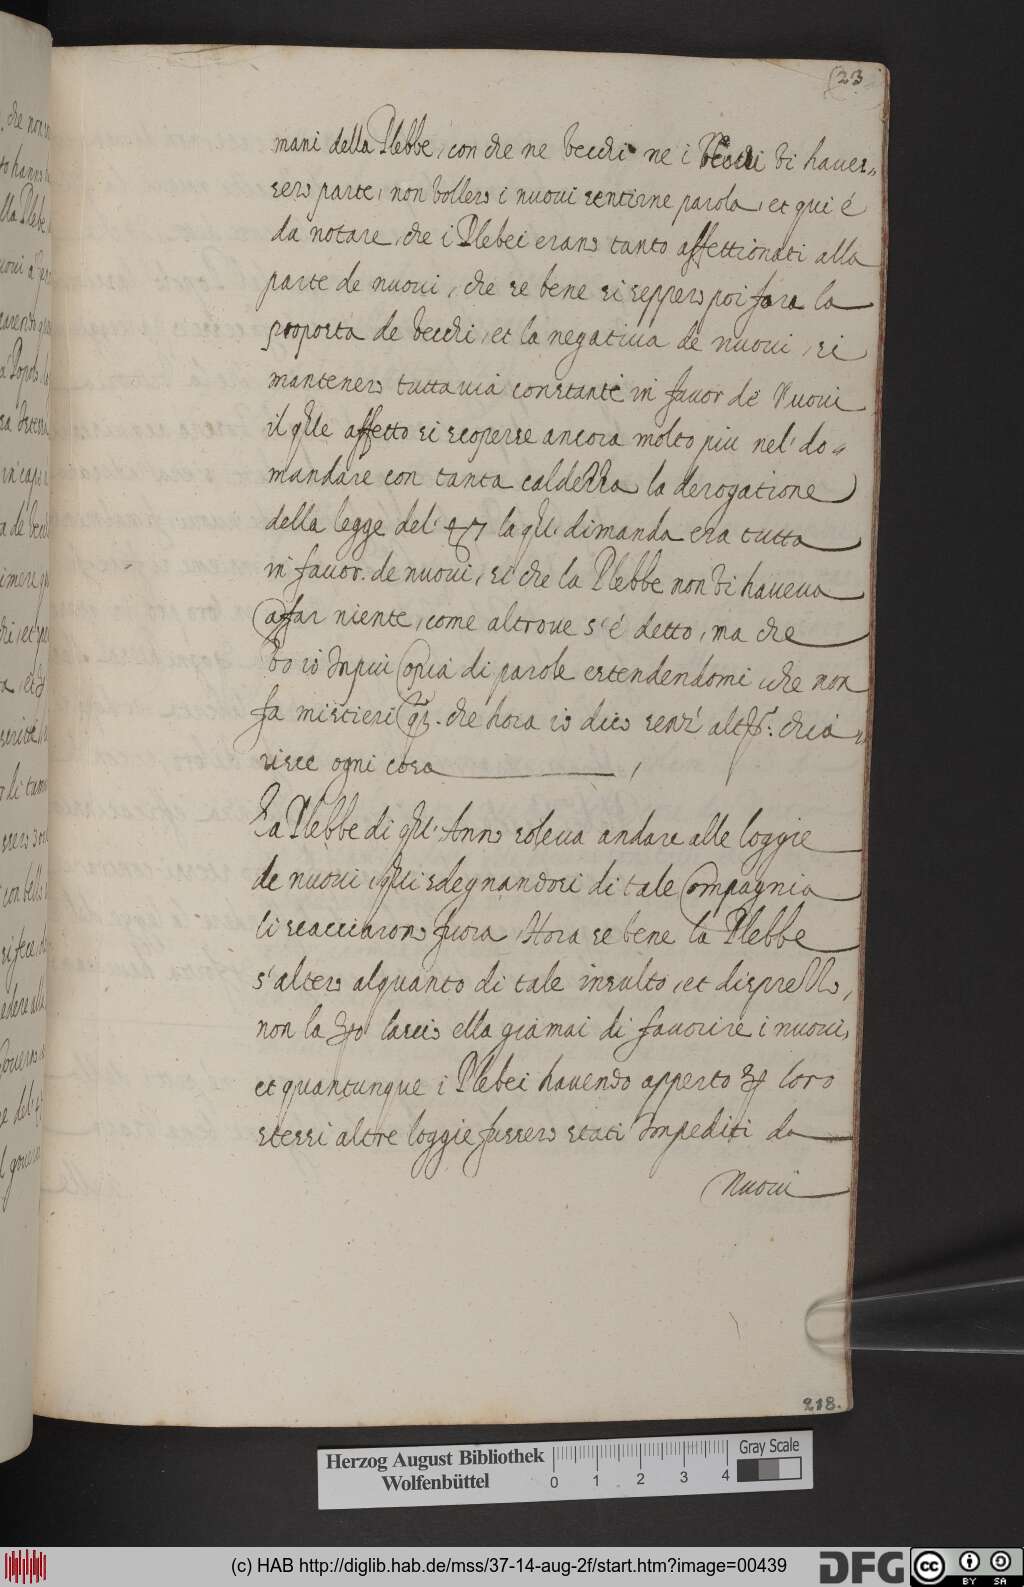 23
mani della Plebbe, con che ne vecchi ne i Vecchi vi haves-
sero parte, non vollero i nuovi sentirne parola, et qui é
da notare, che i Plebei erano tanto affettionati alla
parte de nuovi, che se bene si seppero poi fara la
proposta de vecchi, et la negativa de nuovi, si
mantenero tuttavia constanti in favor de Nuovi
il qle affetto si scoperse ancora molto piu nel' do-
mandare con tanta caldezza la derogatione
della legge del' 47 la ql. dimanda era tutta
in favor. de nuovi, si che la Plebbe non vi haveva
affar niente, come altrove s'é detto, ma che
vo io Inqui Copia di parole estendendomi che non
fa mistieri che hora io dico senz' chia
risce ogni cosa
La Plebbe di ql' Anno soleva andare alle loggie
de nuovi, qlli sdegnandosi di tale Compagnia
li scacciarono fuora, Hora se bene la Plebbe
s'altero alquanto di tale insulto, et disprezzo,
non la lascio ella giamai di favorire i nuovi,
et quantunque i Plebei havendo apperto loro
stessi altre loggie fussero stati Impediti da
Nuovi
218.
Herzog August Bibliothek
Wolfenbüttel
0 1 2 3 4
Gray Scale
(c) HAB http://diglib.hab.de/mss/37-14-aug-2f/start.htm?image=00439
DFG
cc BY SA